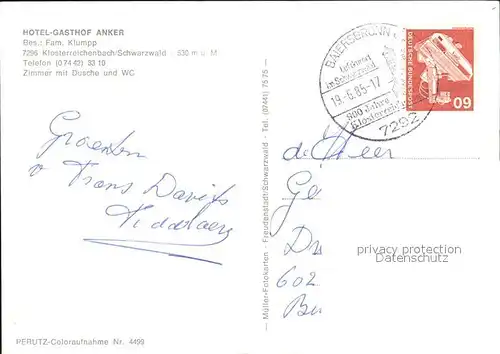 HOTEL-GASTHOF ANKER
Bes.: Fam. Klumpp
7296 Klosterreichenbach/Schwarzwald - 530 m ü. M
Telefon (07442) 33 10
Zimmer mit Dusche und WC
BAIERSBRONN
Luftkurort
im Schwarzwald
19.-6.85-17
900 Jahre
Klosterreich
7292
DEUTSCHE BUNDESPOST
60
de Heer
Ge
Dr
602
Be
Groeten
v Frans Davids
Müller-Fotokarten - Freudenstadt/Schwarzwald - Tel. (07441) 75 75
privacy protection
PERUTZ-Coloraufnahme Nr. 4499